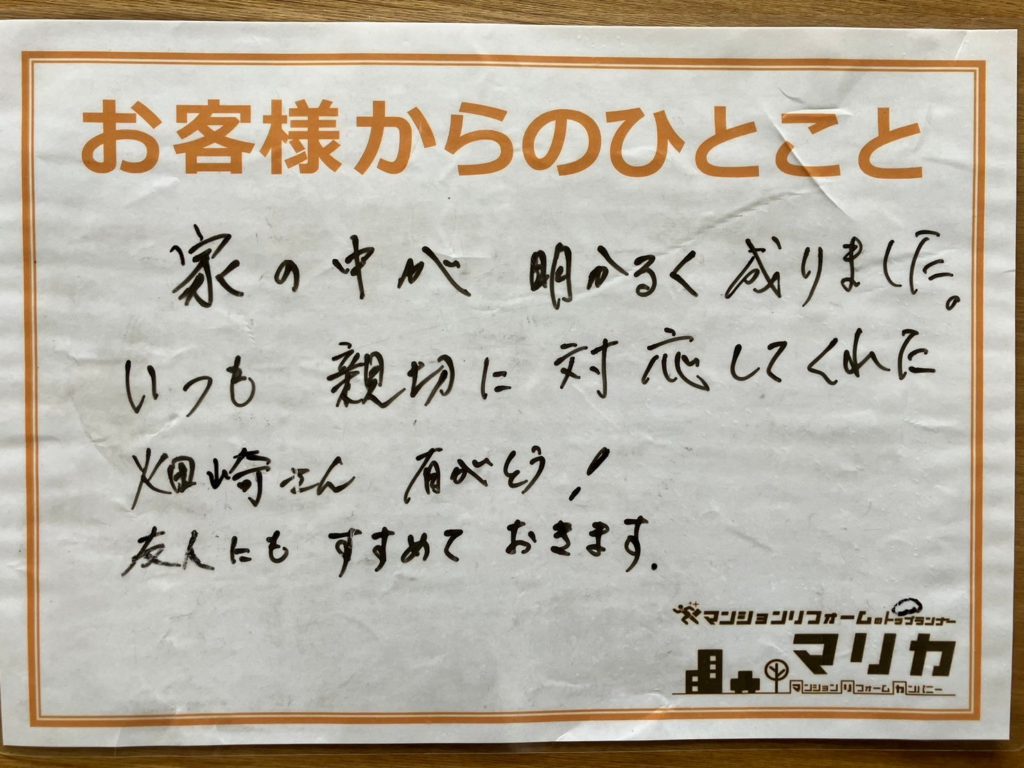 お客様からのひとこと
家の中が 明かるく 成りました。
いつも 親切に 対応してくれた
畑崎さん 有がとう！
友人にも すすめて おきます.
マンションリフォームのトップランナー
マリカ
マンションリフォームカンパニー